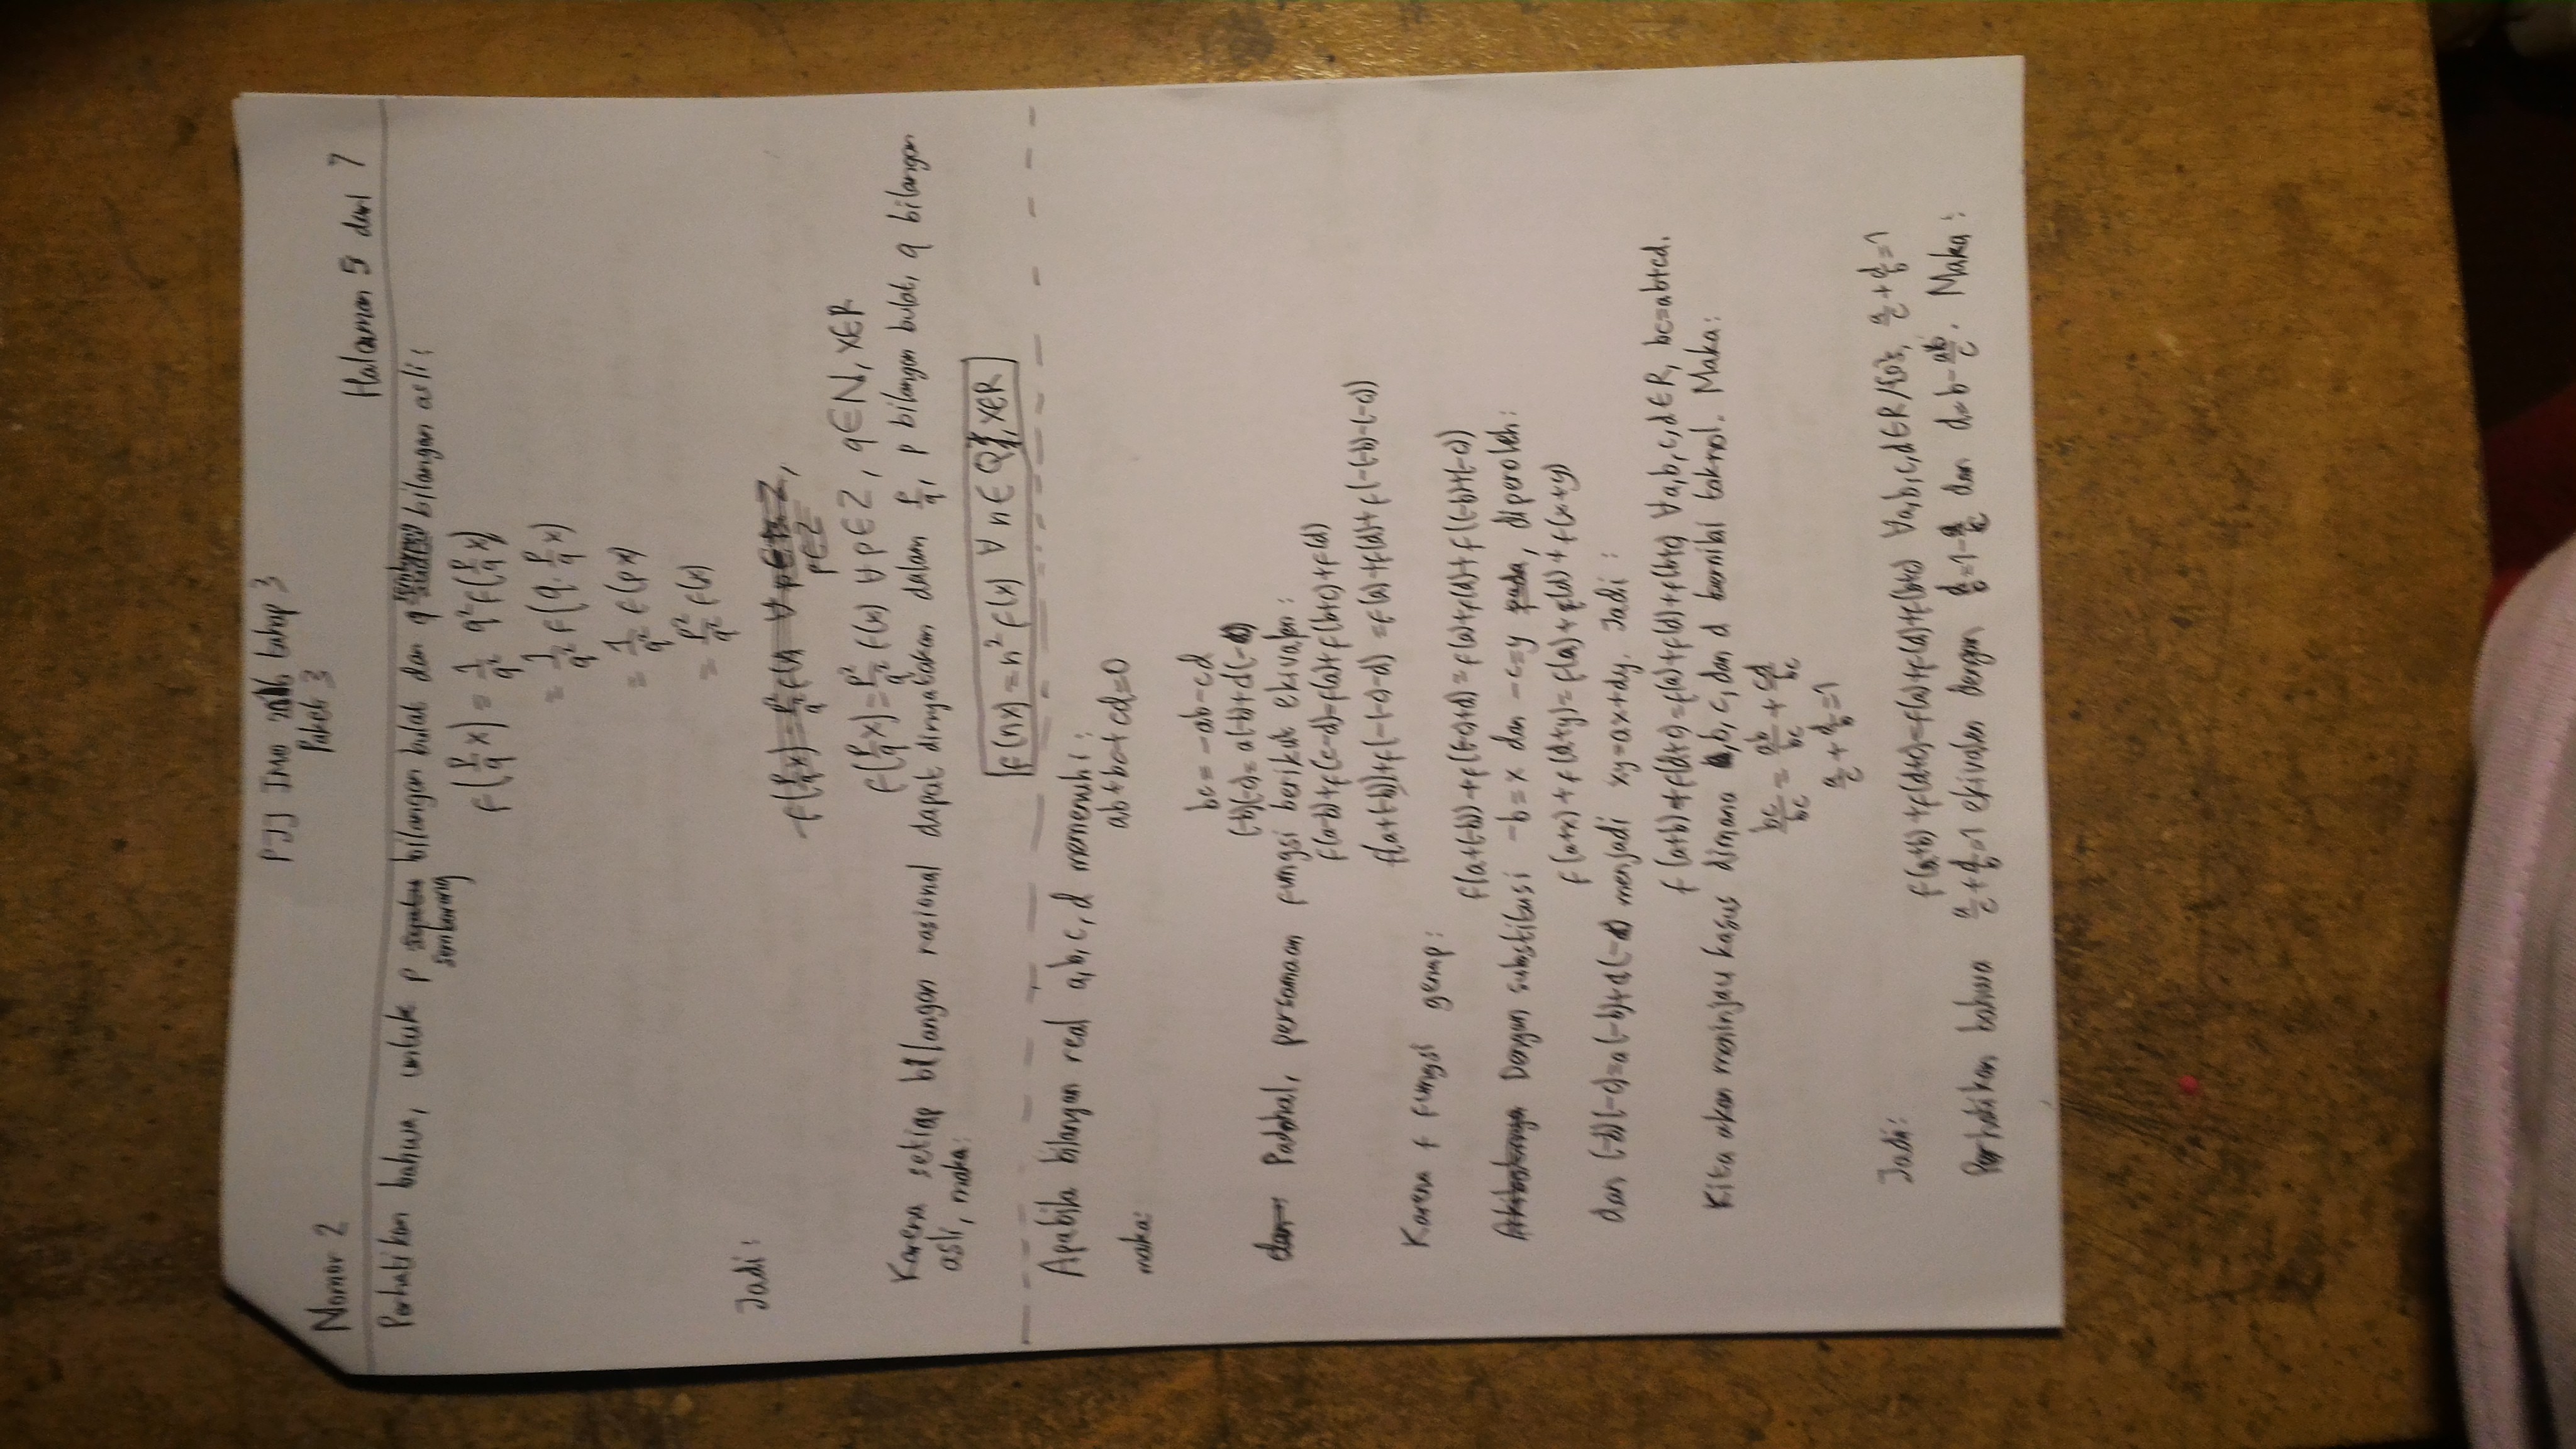 PJJ IMO 2016 tahap 3
Paket 3
Nomor 2
Halaman 5 dari 7
Perhatikan bahwa, untuk p sembarang bilangan bulat dan q sembarang bilangan asli:
f(p/q x) = 1/q² q² f(p/q x)
= 1/q² f(q. p/q x)
= 1/q² f(px)
= p²/q² f(x)
Jadi:
f(p/q x) = p²/q² f(x) ∀ p∈Z,
p∈Z
f(p/q x) = p²/q² f(x) ∀ p∈Z, q∈N, x∈R
Karena setiap bilangan rasional dapat dinyatakan dalam p/q, p bilangan bulat, q bilangan
asli, maka:
f(nx) = n² f(x) ∀ n∈Q, x∈R
Apabila bilangan real a,b,c,d memenuhi:
ab+bc+cd=0
maka:
bc = -ab-cd
(-b)(-c) = a(-b)+d(-c)
dan Padahal, persamaan fungsi berikut ekivalen:
f(a-b)+f(c-d)=f(a)+f(b+c)+f(d)
f(a+(-b))+f(-(-c)-d) = f(a)+f(d)+f(-(-b)-(-c))
Karena f fungsi genap:
f(a+(-b))+f((-c)+d) = f(a)+f(d)+f((-b)+(-c))
Akibatnya Dengan substitusi -b=x dan -c=y pada, diperoleh:
f(a+x)+f(d+y)=f(a)+f(d)+f(x+y)
dan (-b)(-c)=a(-b)+d(-c) menjadi xy=ax+dy. Jadi:
f(a+b)+f(d+c)=f(a)+f(d)+f(b+c) ∀a,b,c,d∈R, bc=ab+cd.
Kita akan meninjau kasus dimana a,b,c, dan d bernilai taknol. Maka:
bc/bc = ab/bc + cd/bc
a/c + d/b = 1
Jadi:
f(a+b)+f(d+c)=f(a)+f(d)+f(b+c) ∀a,b,c,d∈R/{0}, a/c + d/b = 1
Perhatikan bahwa a/c + d/b = 1 ekivalen dengan d/b = 1 - a/c dan d = b - ab/c. Maka: